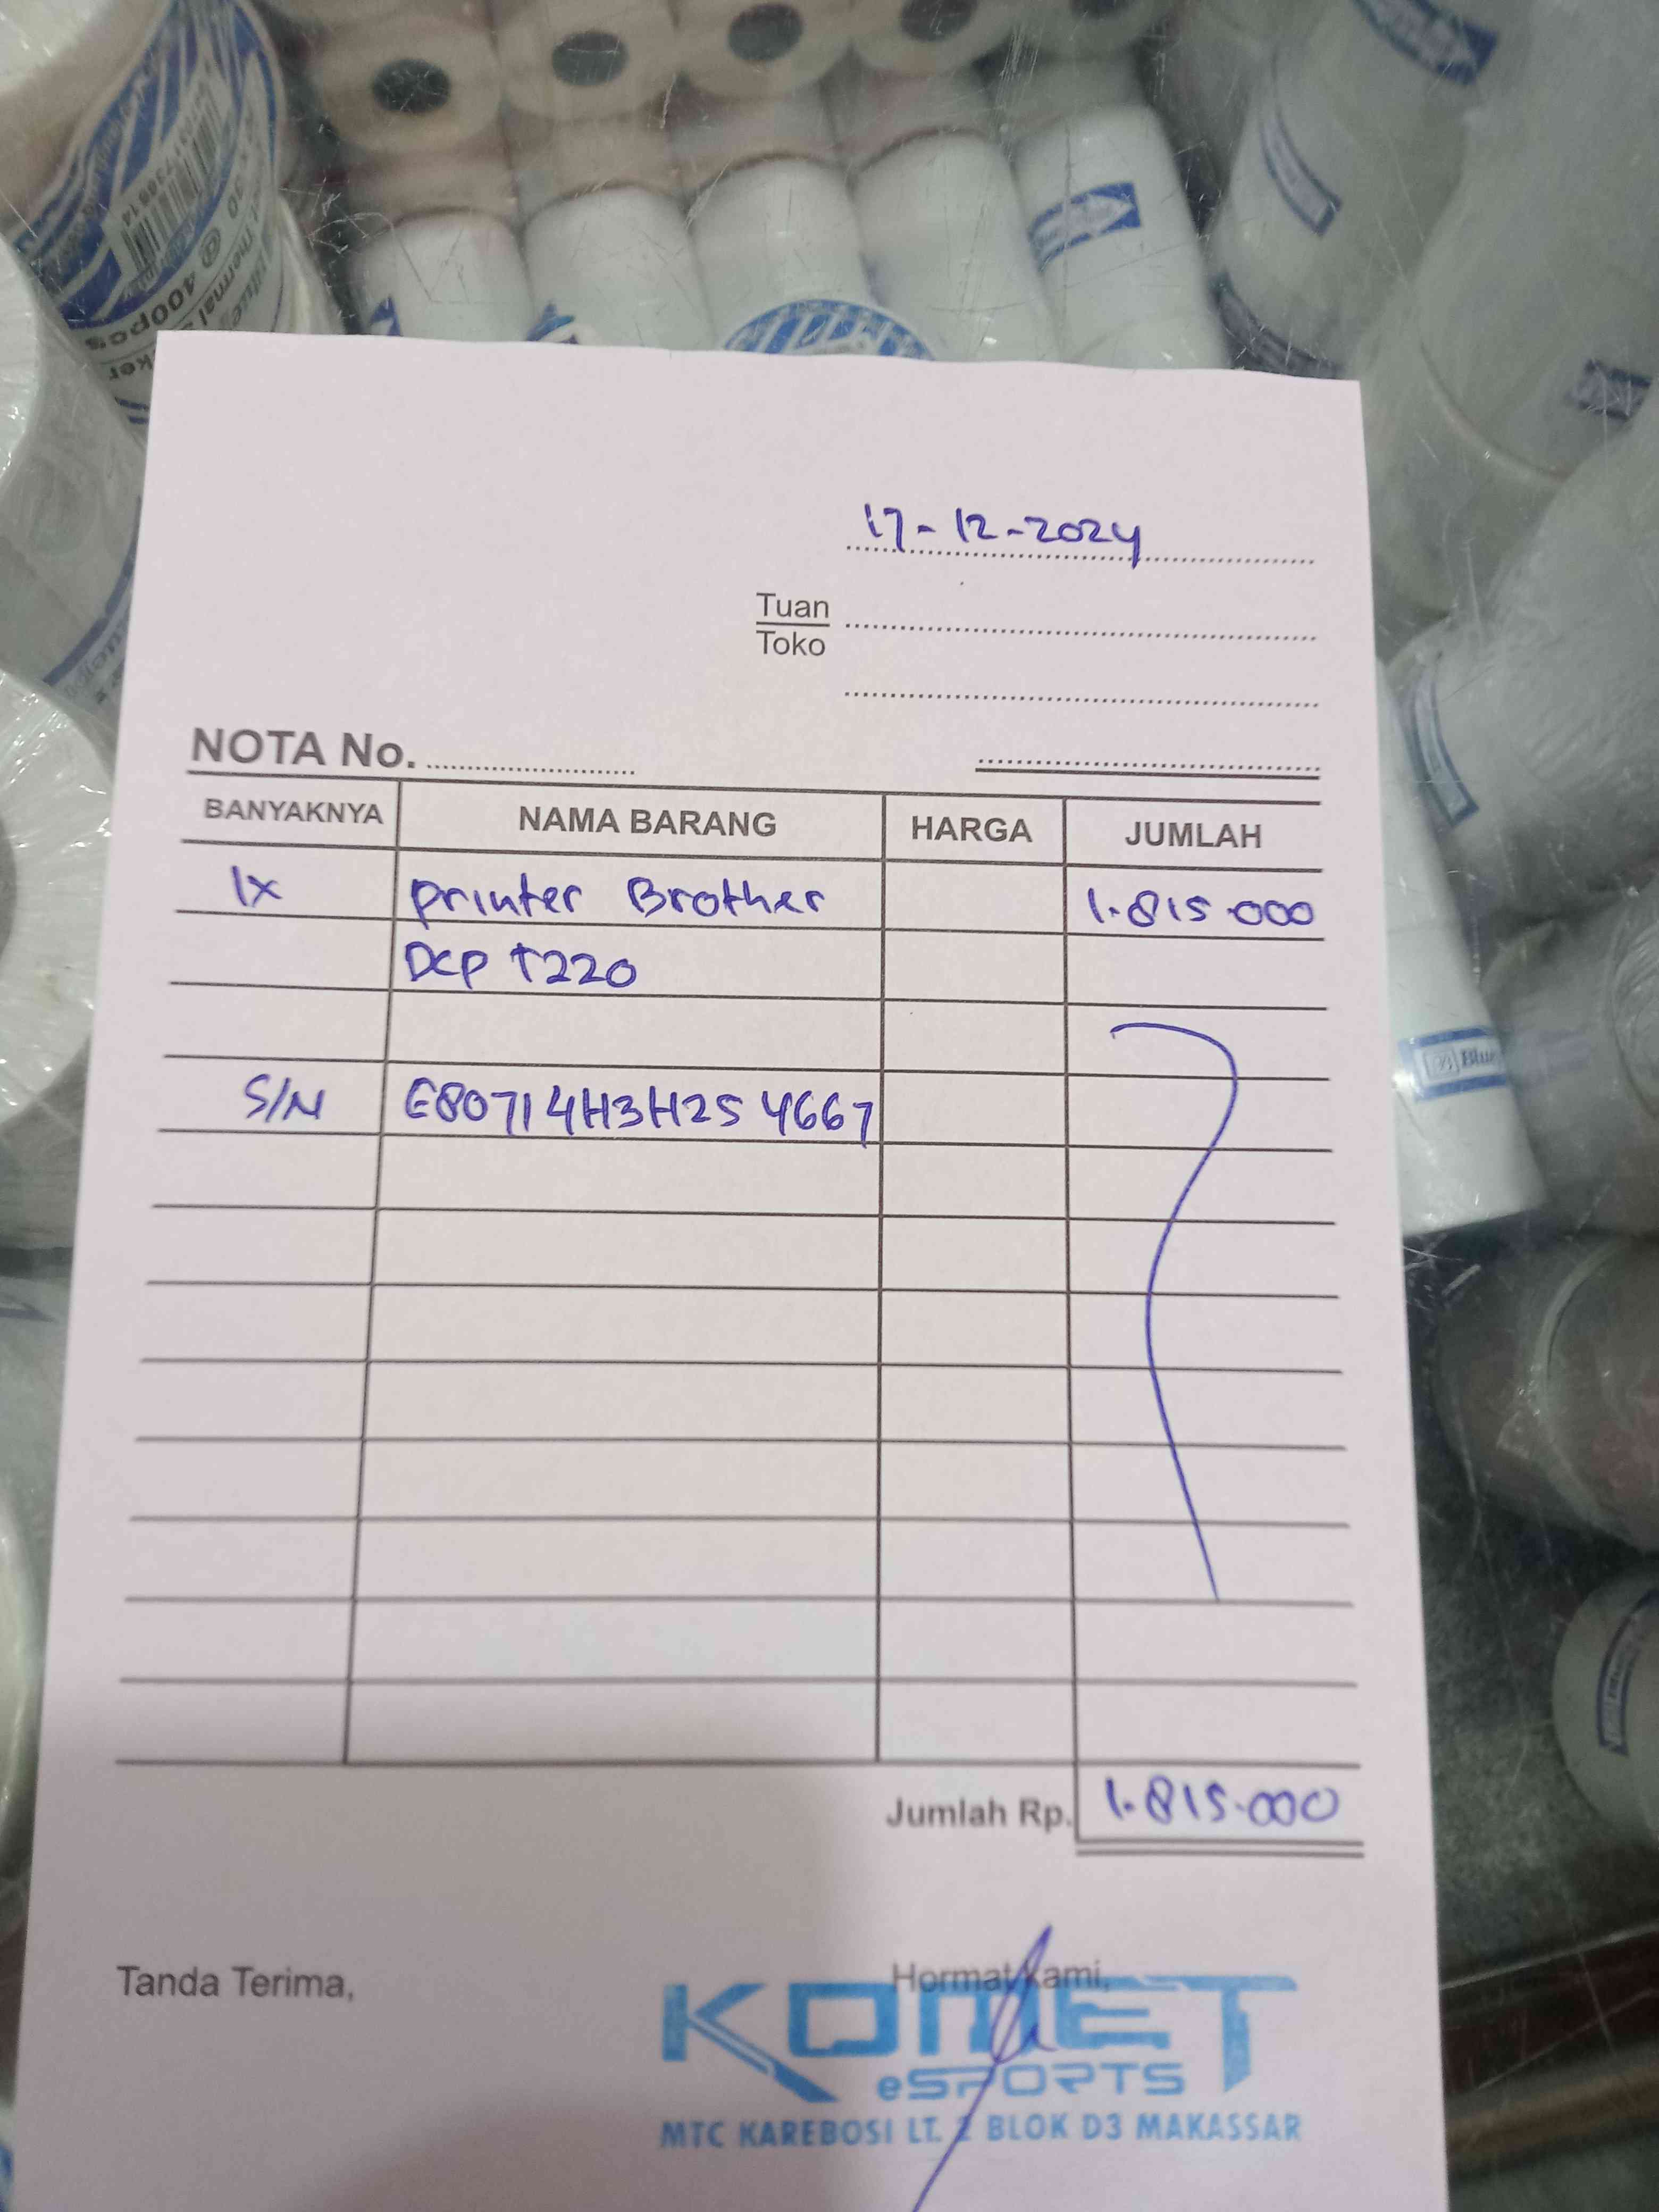 17-12-2024
Tuan
Toko
NOTA No.
BANYAKNYA NAMA BARANG HARGA JUMLAH
1x printer Brother 1.815.000
DCP T220
S/N E80714H3H254667
Jumlah Rp. 1.815.000
Tanda Terima, Hormat Kami,
KOMET
eSPORTS
MTC KAREBOSI LT. 2 BLOK D3 MAKASSAR
@ 400pcs
Blue